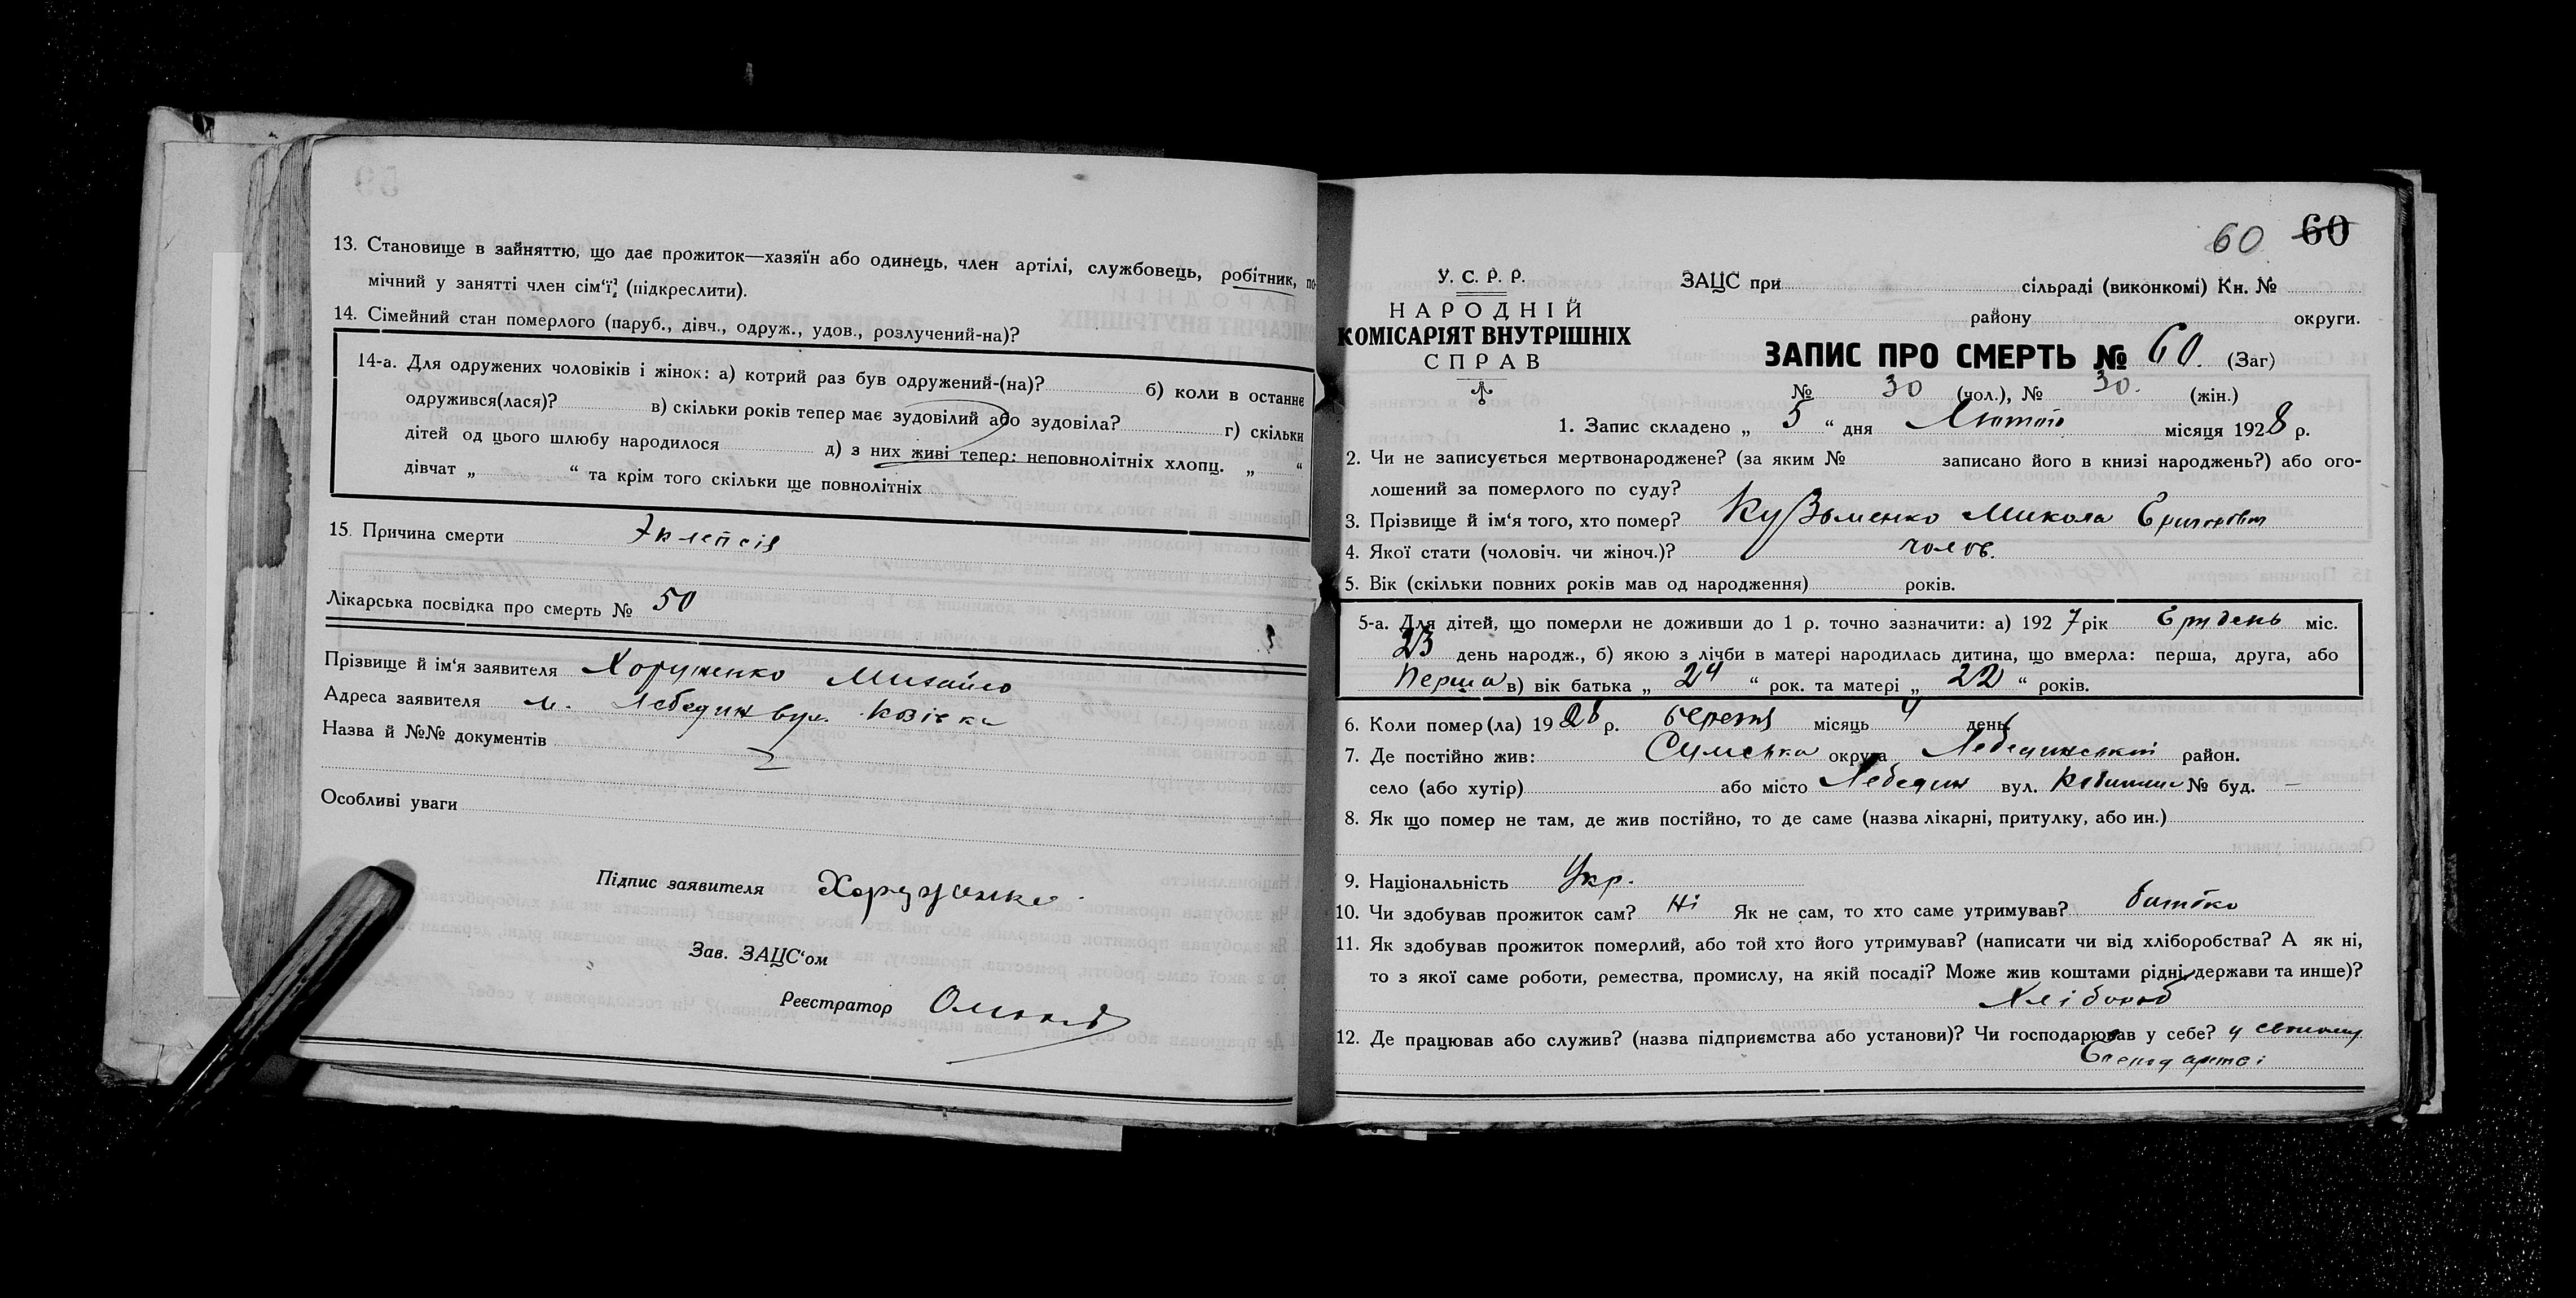 13. Становище в зайняттю, що дає прожиток—хазяїн або одинець, член артілі, службовець, робітник, по-
мічний у занятті член сім'ї, (підкреслити).
14. Сімейний стан померлого (паруб., дівч., одруж., удов., розлучений-на)?
14-а. Для одружених чоловіків і жінок: а) котрий раз був одружений-(на)? б) коли в останнє
одружився(лася)? в) скільки років тепер має зудовілий або зудовіла? г) скільки
дітей од цього шлюбу народилося д) з них живі тепер: неповнолітніх хлопц. „ “
дівчат „ “ та крім того скільки ще повнолітніх
15. Причина смерти
Лікарська посвідка про смерть № 50
Прізвище й ім'я заявителя Хоруженко Михайло
Адреса заявителя м. Лебедин вул.
Назва й №№ документів
Особливі уваги
Підпис заявителя Хоруженко
Зав. ЗАЦС'ом
Реєстратор
60 60
У. С. Р. Р.
НАРОДНІЙ
КОМІСАРІЯТ ВНУТРІШНІХ
СПРАВ
ЗАЦС при сільраді (виконкомі) Кн. №
району округи.
ЗАПИС ПРО СМЕРТЬ № 60 (Заг)
№ 30 (чол.), № 30. (жін.)
1. Запис складено „ 5 “ дня Лютого місяця 1928 р.
2. Чи не записується мертвонароджене? (за яким № записано його в книзі народжень?) або ого-
лошений за померлого по суду?
3. Прізвище й ім'я того, хто помер? Кузьменко Микола
4. Якої стати (чоловіч. чи жіноч.)? чолов.
5. Вік (скільки повних років мав од народження) років.
5-а. Для дітей, що померли не доживши до 1 р. точно зазначити: а) 1927 рік Грудень міс.
23 день народж., б) якою з лічби в матері народилась дитина, що вмерла: перша, друга, або
Перша в) вік батька „ 24 “ рок. та матері „ 22 “ років.
6. Коли помер(ла) 1928 р. березня місяць 4 день
7. Де постійно жив: Сумська округа Лебединський район.
село (або хутір) або місто Лебедин вул. № буд. —
8. Як що помер не там, де жив постійно, то де саме (назва лікарні, притулку, або ин.)
9. Національність Укр.
10. Чи здобував прожиток сам? Ні Як не сам, то хто саме утримував? батько
11. Як здобував прожиток померлий, або той хто його утримував? (написати чи від хліборобства? А як ні,
то з якої саме роботи, ремества, промислу, на якій посаді? Може жив коштами рідні, держави та инше)?
Хлібороб
12. Де працював або служив? (назва підприємства або установи)? Чи господарював у себе? у своему
Господарстві